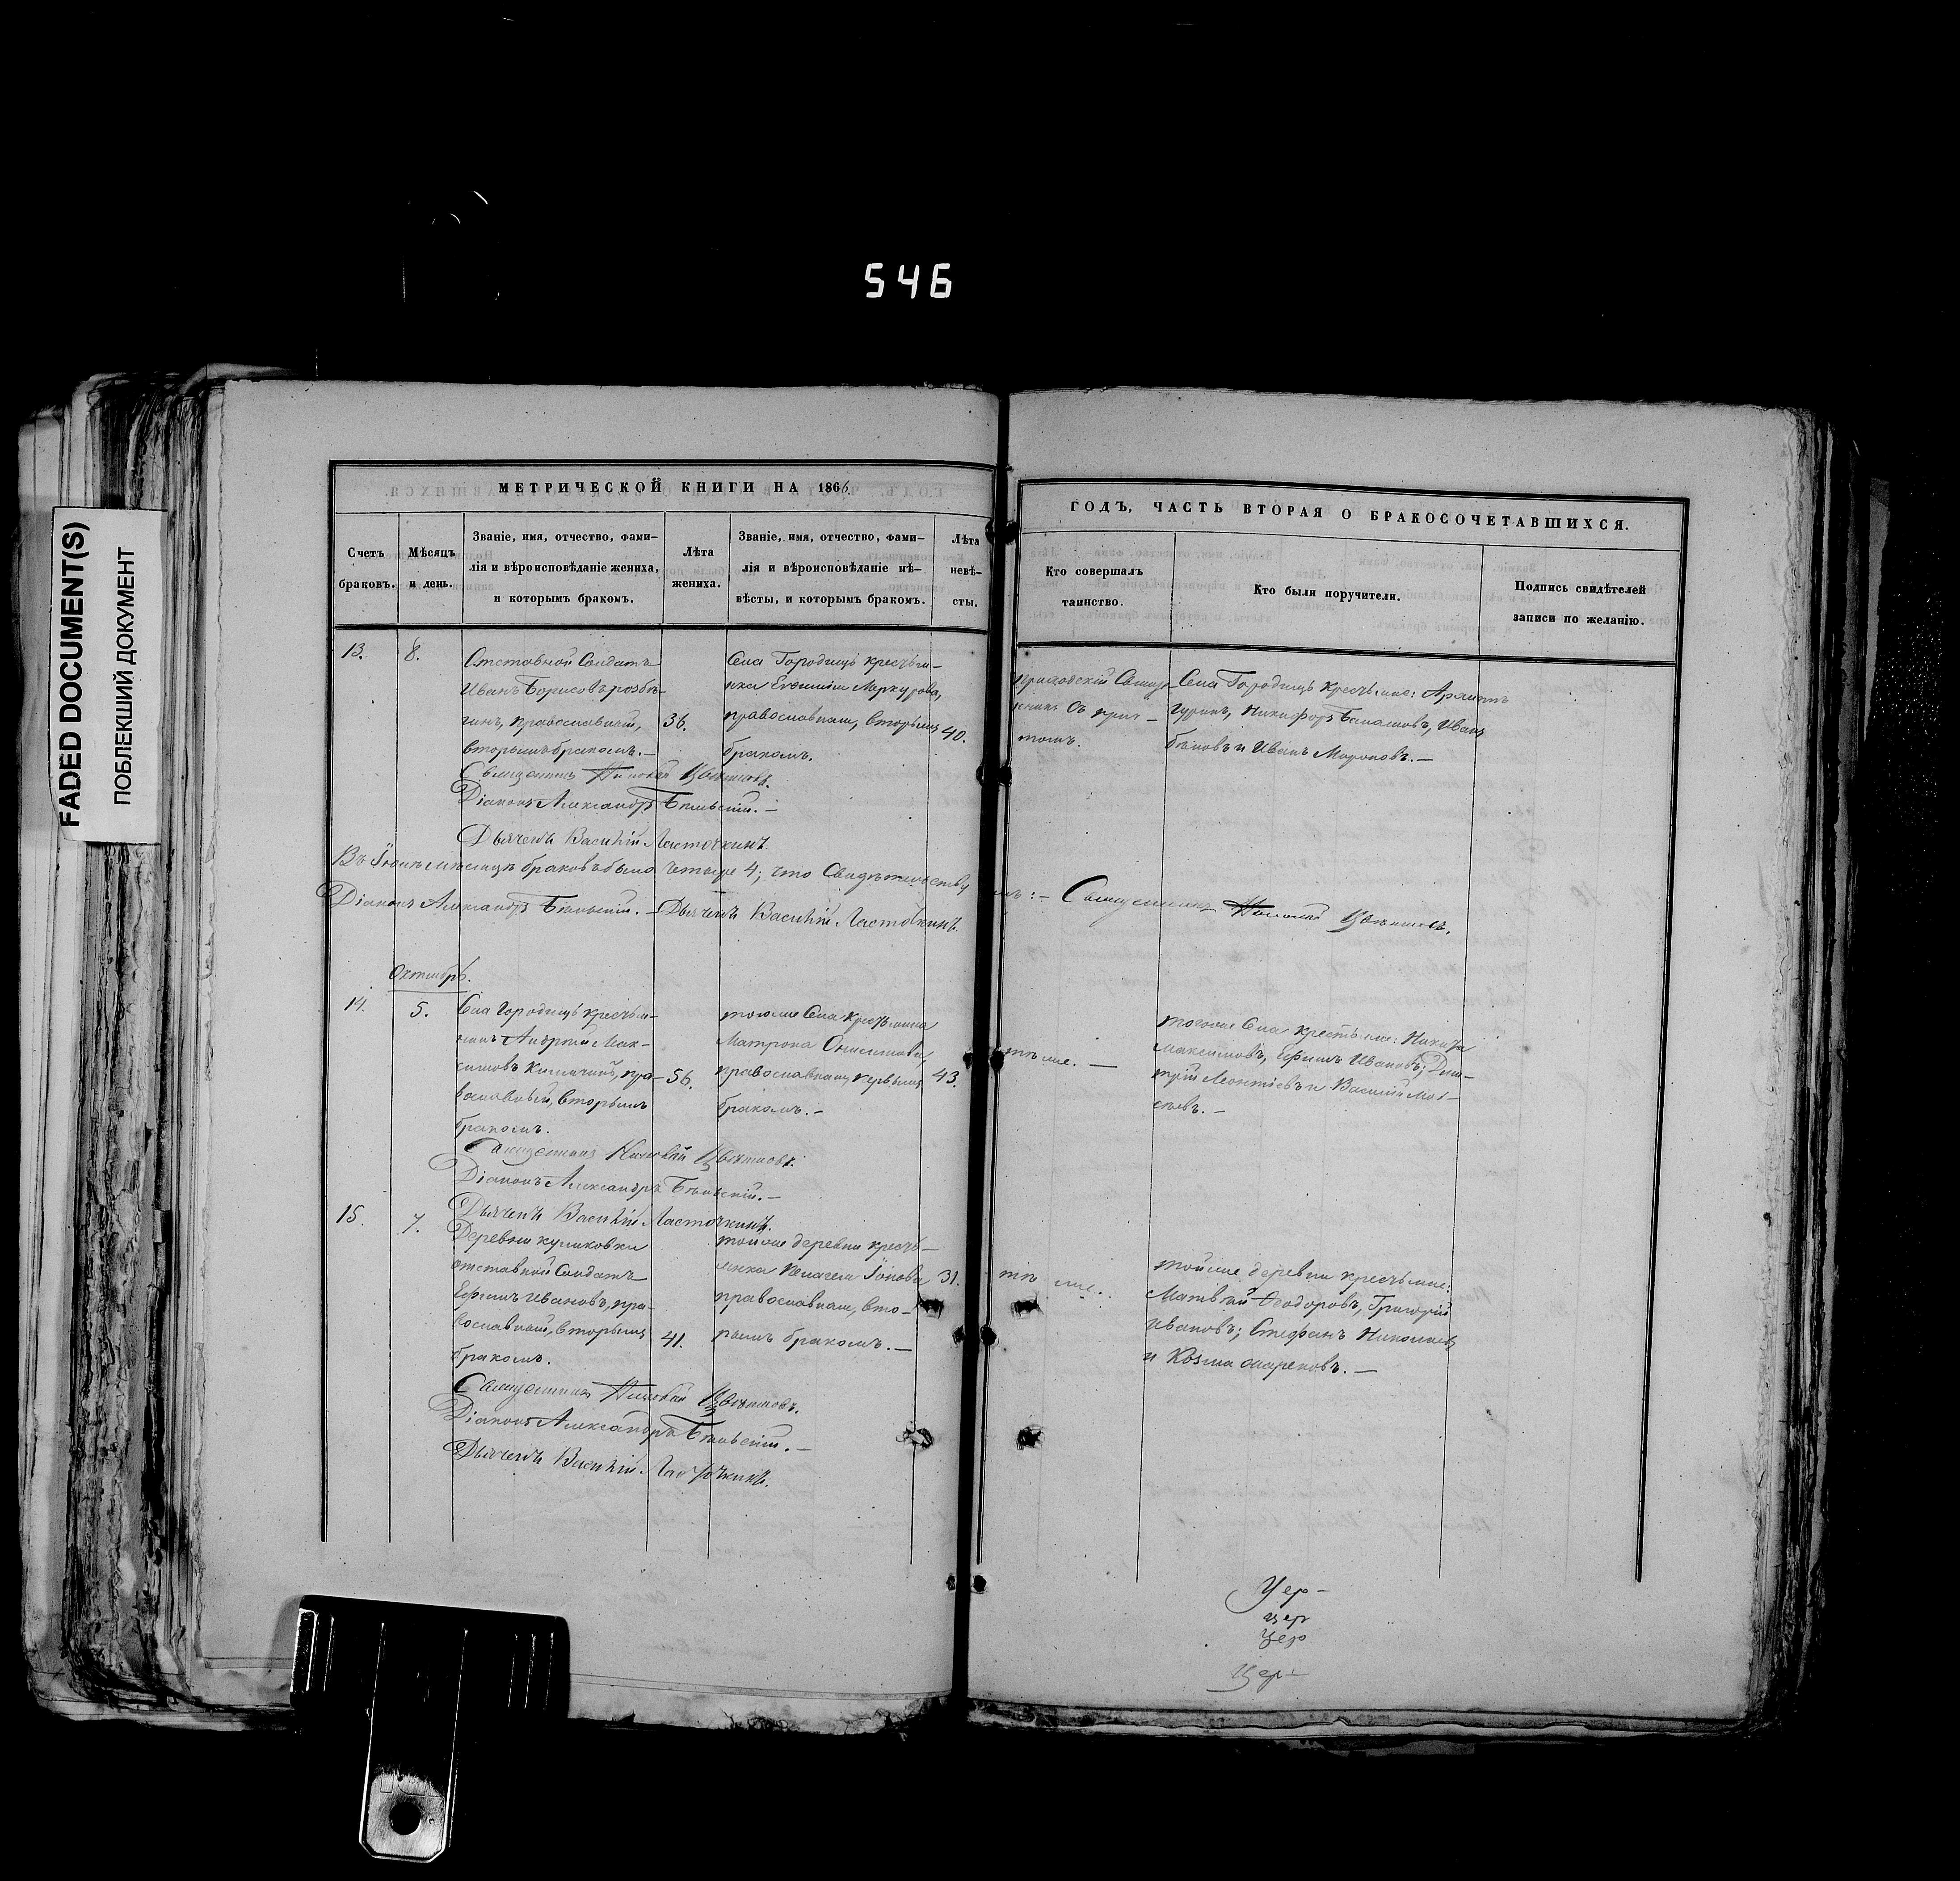 546
FADED DOCUMENT(S)
ПОБЛЕКШИЙ ДОКУМЕНТ
МЕТРИЧЕСКОЙ КНИГИ НА 1866
Счетъ браковъ.
Мѣсяцъ и день.
Званіе, имя, отчество, фами-
лія и вѣроисповѣданіе жениха,
и которымъ бракомъ.
Лѣта
жениха.
Званіе, имя, отчество, фами-
лія и вѣроисповѣданіе нѣ-
вѣсты, и которымъ бракомъ.
Лѣта
невѣ-
сты.
13.
8.
Отставной Солдатъ
Иванъ Борисовъ
православный,
вторымъ бракомъ.—
36.
Села Городищъ крестья-
нка Евгенія Меркурова,
православная, вторымъ
бракомъ.
40.
Священникъ Николай Цвѣтковъ.
Діаконъ Александръ Бѣльскій.—
Дьячекъ Василій Ласточкинъ.
Въ Іюнѣ мѣсяцѣ браковъ было четыре 4; что Свидѣтельству
Діаконъ Александръ Бѣльскій.— Дьячекъ Василій Ласточкинъ.
Октябрь.
14.
5.
Села Городищъ крестья-
нинъ Андрей Мак-
симовъ пра-
вославный, вторымъ
бракомъ.
56.
тогоже Села крестьянка
Матрона Онисимова,
православная, первымъ
бракомъ.—
43.
Священникъ Николай Цвѣтковъ.
Діаконъ Александръ Бѣльскій.—
Дьячекъ Василій Ласточкинъ.
15.
7.
Деревни куликовки
отставной Солдатъ
Ефимъ Ивановъ, пра-
вославный, вторымъ
бракомъ.
41.
тойже деревни кресть-
янка Пелагея Іонова
православная, вто-
рымъ бракомъ.—
31.
Священникъ Николай Цвѣтковъ.
Діаконъ Александръ Бѣльскій.—
Дьячекъ Василій Ласточкинъ.
ГОДЪ, ЧАСТЬ ВТОРАЯ О БРАКОСОЧЕТАВШИХСЯ.
Кто совершалъ
таинство.
Кто были поручители.
Подпись свидѣтелей
записи по желанію.
приходскій Священ-
никъ съ прич-
томъ.
Села Городищъ Крестьяне:
Гуринъ, Никифоръ Иванъ
и Иванъ Мироновъ.—
Священникъ Николай Цвѣтковъ.
тѣ же.—
тогоже Села крестьяне: Никита
Максимовъ, Ефимъ Ивановъ; Дми-
трій Леонтіевъ и Василій Мои-
сѣевъ.—
тѣ же.
тойже деревни крестьяне:
Матвѣй Ѳеодоровъ, Григорій
Ивановъ; Стефанъ Николаевъ
и Козма
Цер-
цер
Цер
Цер-